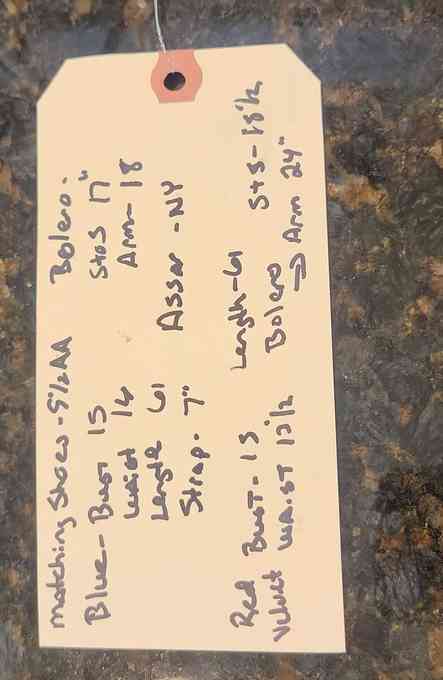 matching Shoes -
Blue - Bust 15
Waist 14
Length 61
Strap - 7"
Bolero:
StoS 17"
Arm - 18
Assar - NY
Red Bust - 15 Length - 61
Velvet Waist 13 1/2 Bolero S+S - 18 1/2
→ Arm 24"